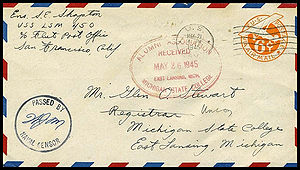 Ens. S.E. Shapton
USS LSM 450
% Fleet Post Office
San Francisco Calif
U.S.
ALUMNI
RECEIVED
MAY 26 1945
EAST LANSING, MICH.
MICHIGAN STATE COLLEGE
6
Mr. Glen O. Stewart
Registrar
Michigan State College
East Lansing, Michigan
PASSED BY
NAVAL CENSOR